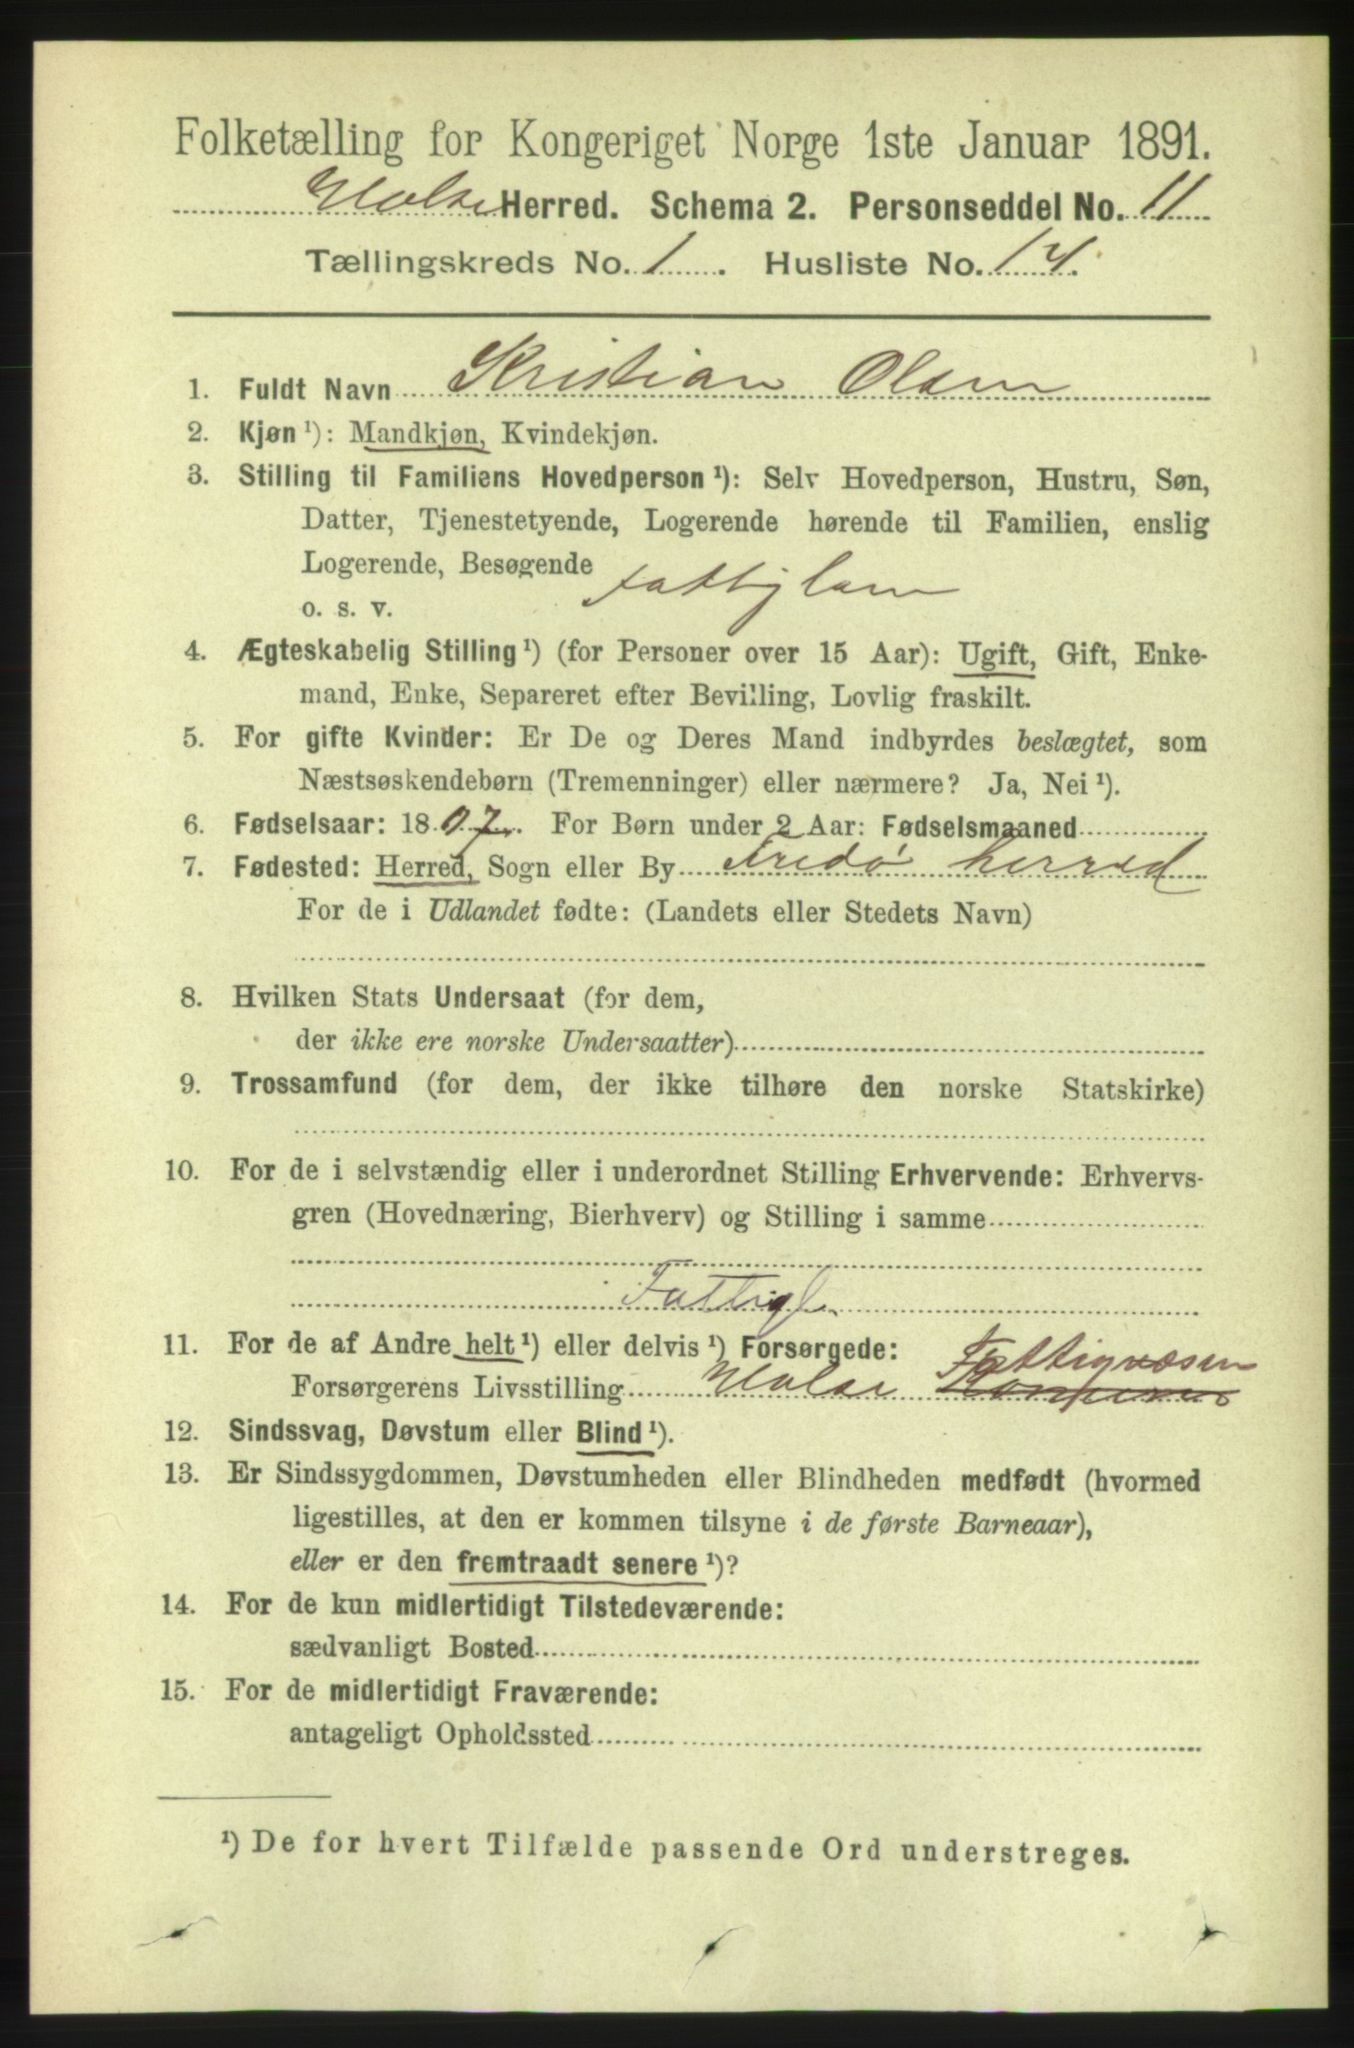 Folketælling for Kongeriget Norge 1ste Januar 1891.
Halse Herred. Schema 2. Personseddel No. 11
Tællingskreds No. 1. Husliste No. 14.
1. Fuldt Navn Kristian Olsen
2. Kjøn ¹): Mandkjøn, Kvindekjøn.
3. Stilling til Familiens Hovedperson ¹): Selv Hovedperson, Hustru, Søn,
Datter, Tjenestetyende, Logerende hørende til Familien, enslig
Logerende, Besøgende
o. s. v. fattiglem
4. Ægteskabelig Stilling ¹) (for Personer over 15 Aar): Ugift, Gift, Enke-
mand, Enke, Separeret efter Bevilling, Lovlig fraskilt.
5. For gifte Kvinder: Er De og Deres Mand indbyrdes beslægtet, som
Næstsøskendebørn (Tremenninger) eller nærmere? Ja, Nei ¹).
6. Fødselsaar: 1807. For Børn under 2 Aar: Fødselsmaaned
7. Fødested: Herred, Sogn eller By Fredø herred
For de i Udlandet fødte: (Landets eller Stedets Navn)
8. Hvilken Stats Undersaat (for dem,
der ikke ere norske Undersaatter)
9. Trossamfund (for dem, der ikke tilhøre den norske Statskirke)
10. For de i selvstændig eller i underordnet Stilling Erhvervende: Erhvervs-
gren (Hovednæring, Bierhverv) og Stilling i samme
Fattigl
11. For de af Andre helt ¹) eller delvis ¹) Forsørgede: Fattigvæsen
Forsørgerens Livsstilling Halse
12. Sindssvag, Døvstum eller Blind ¹).
13. Er Sindssygdommen, Døvstumheden eller Blindheden medfødt (hvormed
ligestilles, at den er kommen tilsyne i de første Barneaar),
eller er den fremtraadt senere ¹)?
14. For de kun midlertidigt Tilstedeværende:
sædvanligt Bosted
15. For de midlertidigt Fraværende:
antageligt Opholdssted
¹) De for hvert Tilfælde passende Ord understreges.